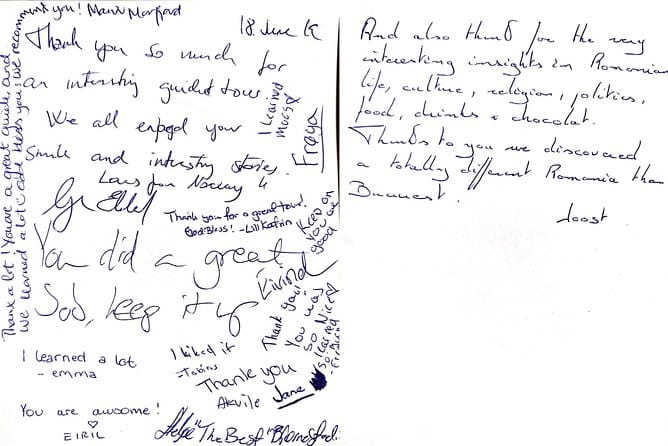 Thank you so much for
an intersting guided tour.
We all enjoyed your
Smile and intersting stories.
Love from Norway
Thank you for a great tour!
God Bless! - Lill Katrin
You did a great
Job, keep it up
I learned a lot
- emma
I liked it
- Tobias
Thank you
Akvile
Jane
You are awcome!
EIRIL
"The Best"
18. June
I learned
much
Frøya
Keep on
you are
good
Eivind
Thank you!
You was
so Nice
Thank a lot! You are a great guide, and
we learned a lot
recommend you!
And also thank for the very
interesting insights in Romanian
life, culture, religion, politics,
food, drinks + chocolat.
Thanks to you we discovered
a totally different Romania than
Bucarest.
Joost